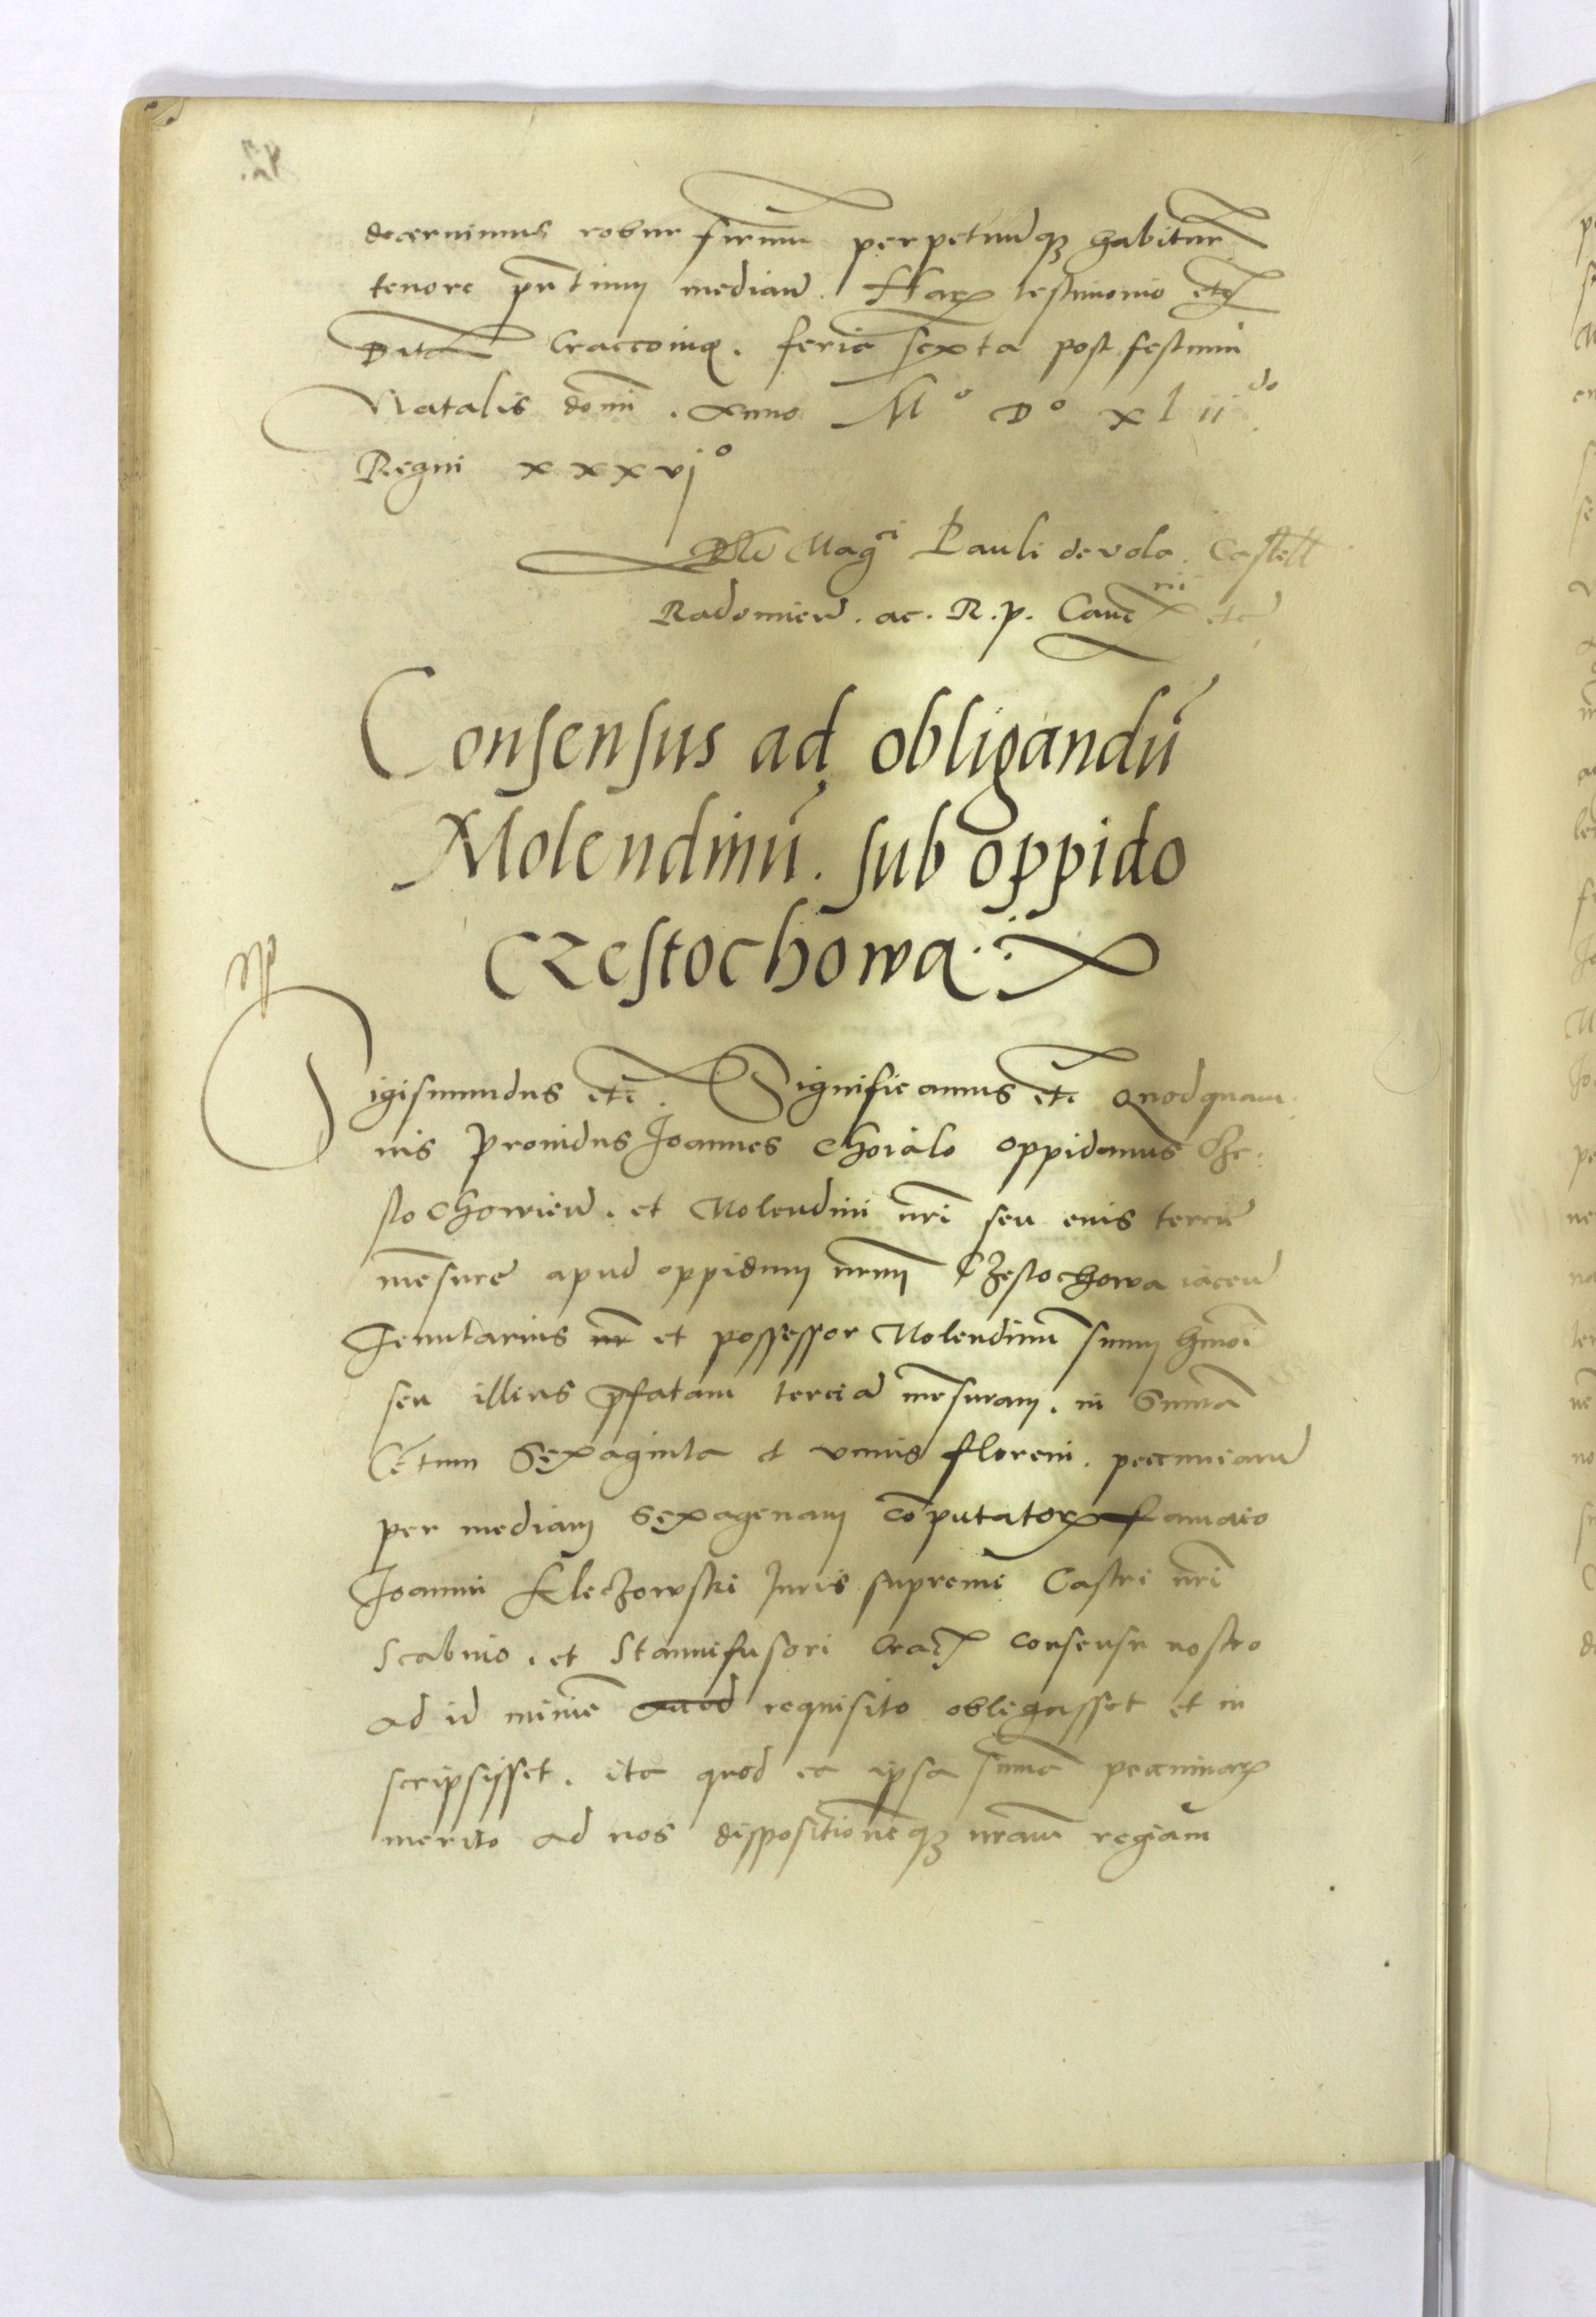 decernimus robur firmũ perpetuũqꝫ habitur̃
tenore pñtium median̄. Harꝝ testimonio etc̃
Datũ Craccouię. feria sexta post festum
Natalis domī. Anno Mº Dº xl ii do
Regni xxxvjº
Magci Pauli de vola. Castell
Radomien̄. ac. R. p. Canc̃rii etc̃
Consensus ad obligandũ
Molendinũ. sub oppido
CZestochowa
Sigismundus etc̃. Significamus etc̃ Quod quam
uis Prouidus Joannes Choialo oppidanus Cze:
stochowien̄. et Molendini nr̃i seu eius tercie
mẽsure apud oppidum nr̃um CZestochowa iacen̄
Tenutarius nr̃ et possessor Molendinũ suum hmõi
seu illius p̃fatam terciã mẽsuram. in Sum̃a
Cẽtum Sexaginta et vnius floreni. pecuniarũ
per mediam sexagenam cõputatorꝝ famato
Joanni KleCZowski Juris supremi Castri nr̃i
Scabino. et Stannifusori Cracꝫ consensu nostro
ad id minime quod requisito obligasset et in
scripsisset. ita quod ea ipsa sum̃a pecuniarꝝ
merito ad nos dispositionẽqꝫ nr̃am regiam